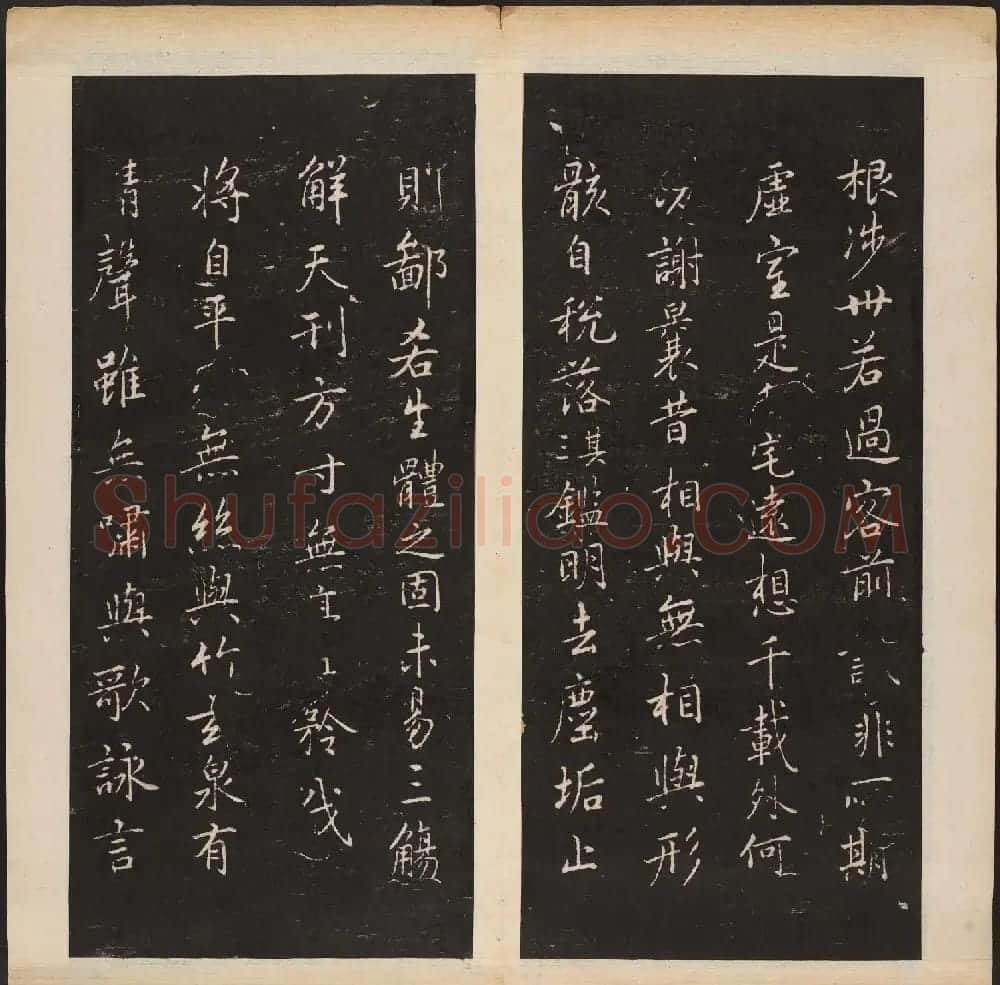 根涉世若過客前識非所期
虛室是我宅遠想千載外何
以謝曩昔相與無相與形
骸自稅落其三鑑明去塵垢止
則鄙吝生體之固未易三觴
解天刑方寸無主矜伐
將自平雖無絲與竹玄泉有
清聲雖無嘯與歌詠言
Shufaziliao.COM